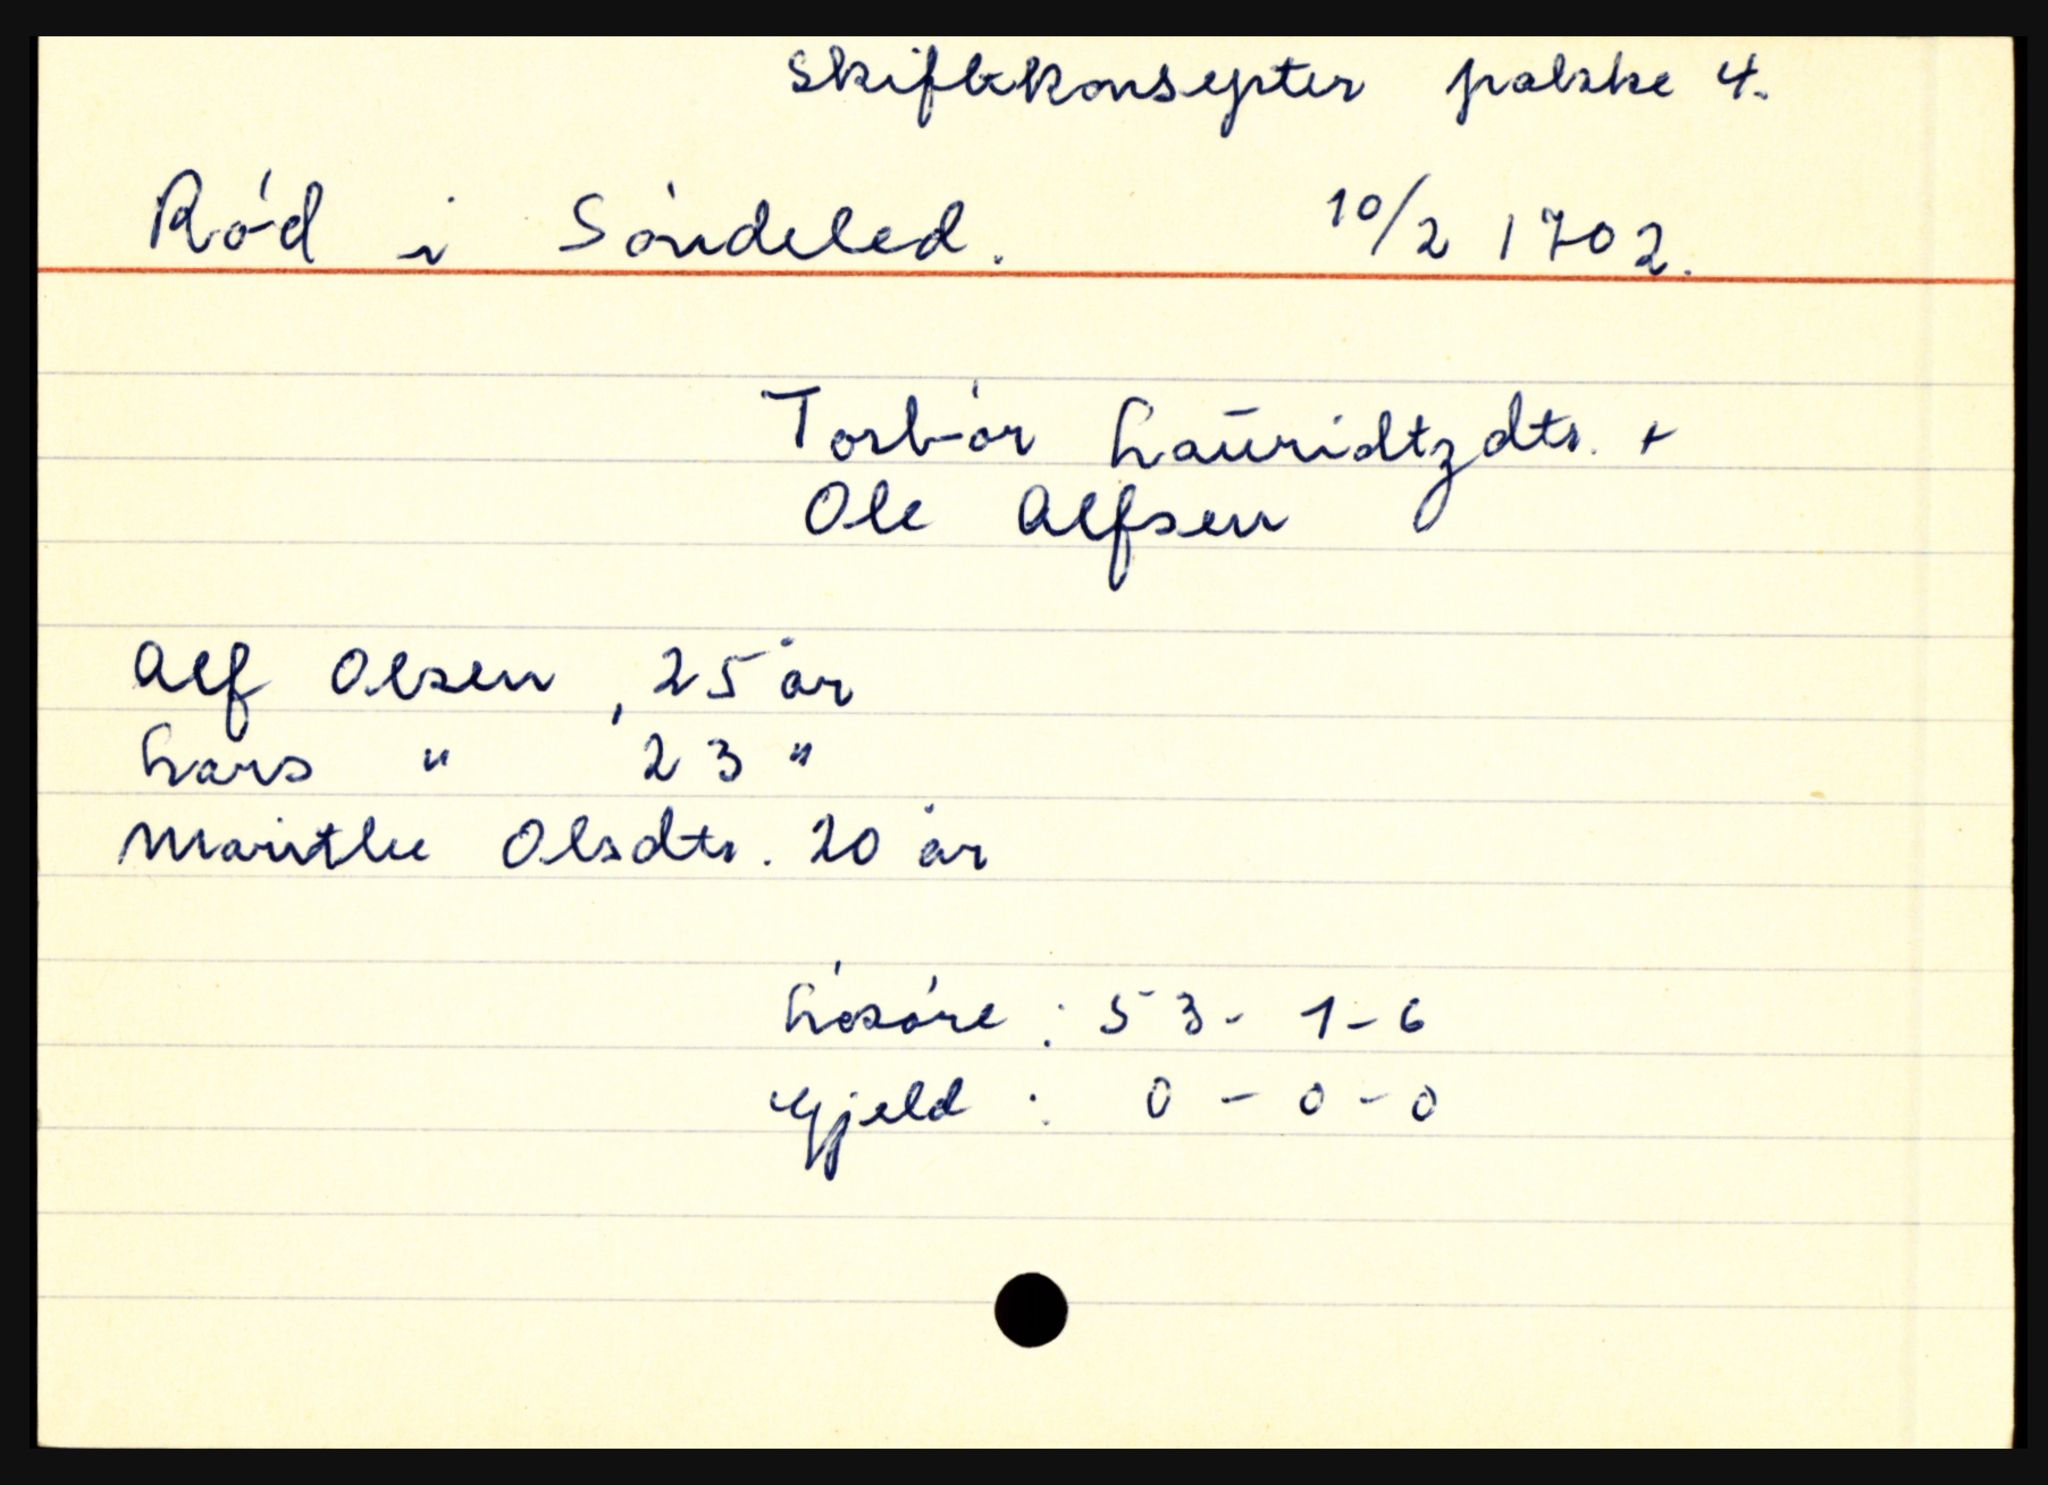 Skiftekonsepter pakke 4.
Ród i Sóndeled. 10/2 1702.
Torbór Lauridtzdtr. +
Ole Alfsen
Alf Olsen, 25 år
Lars " 23 "
Marithe Olsdtr. 20 år
Lósóre : 53 - 1 - 6
Gjeld : 0 - 0 - 0